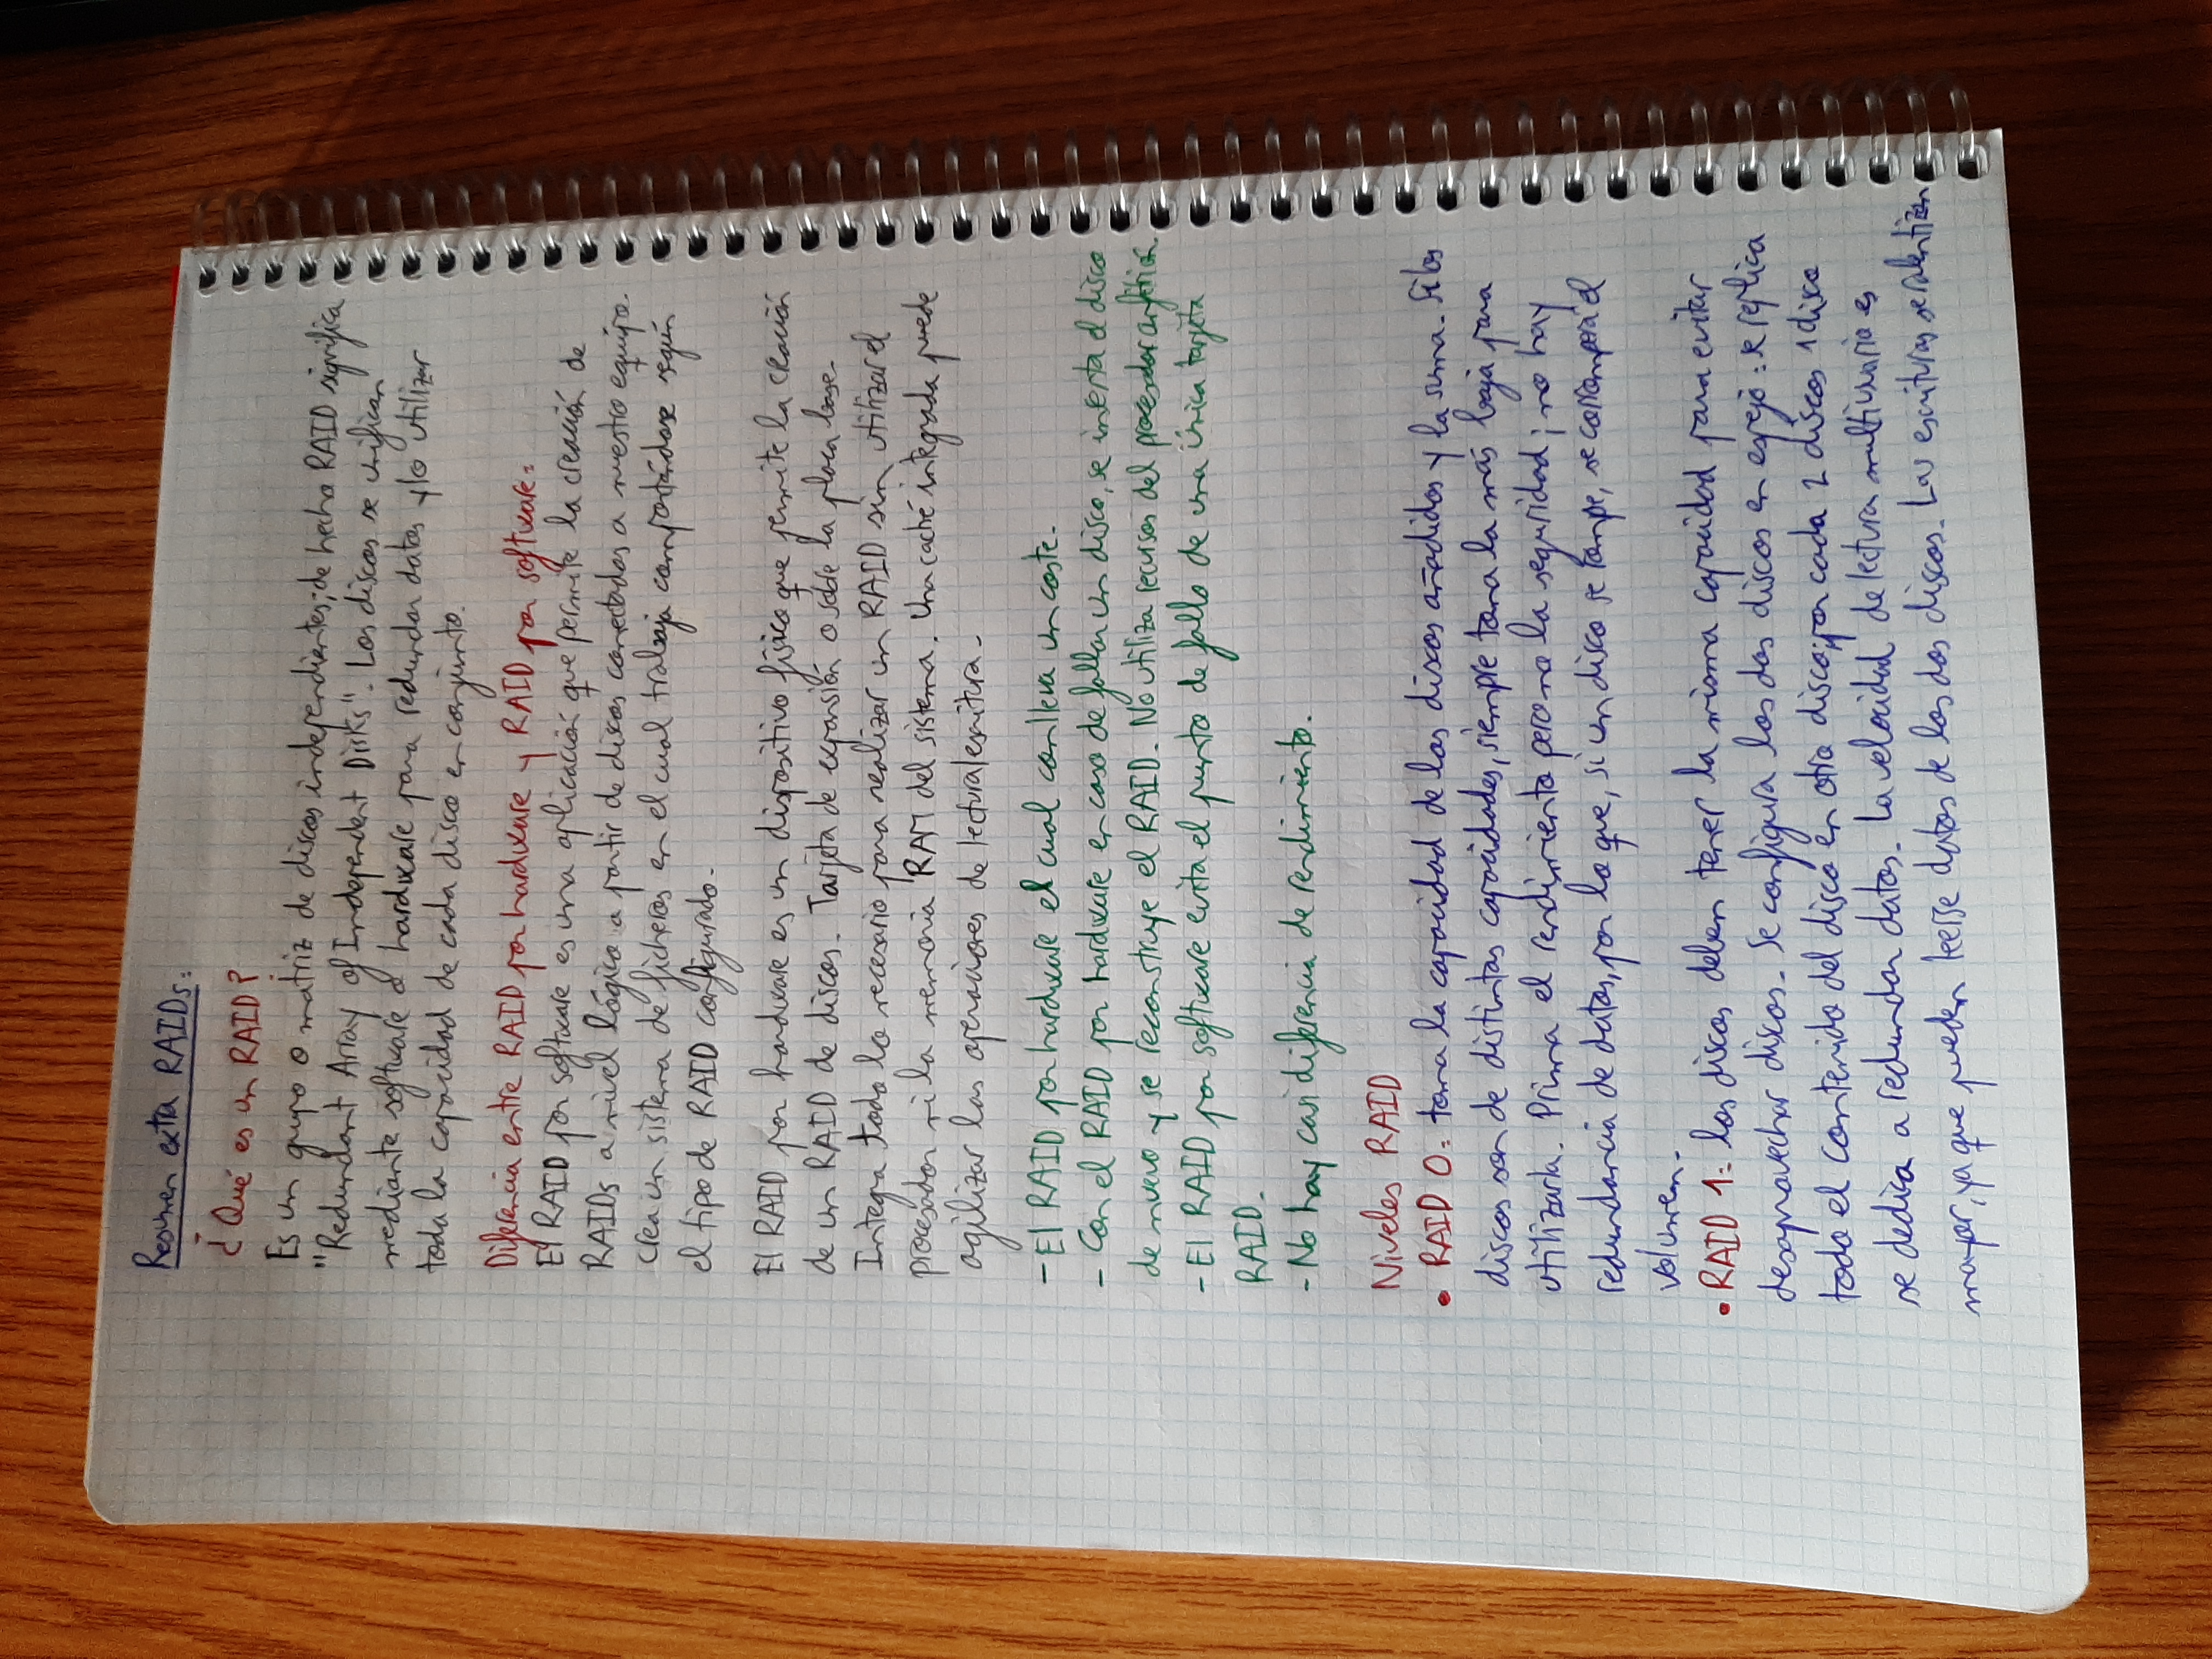 Resumen extra RAIDs:
¿Qué es un RAID?
Es un grupo o matriz de discos independientes; de hecho RAID significa
"Redundant Array of Independent Disks". Los discos se unifican
mediante software o hardware para redundar datos y/o utilizar
toda la capacidad de cada disco en conjunto.
Diferencia entre RAID por hardware y RAID por software:
El RAID por software es una aplicación que permite la creación de
RAIDs a nivel lógico a partir de discos conectados a nuestro equipo.
Crea un sistema de ficheros en el cual trabaja comportándose según
el tipo de RAID configurado.
El RAID por hardware es un dispositivo físico que permite la creación
de un RAID de discos. Tarjeta de expansión o sobre la placa base.
Integra todo lo necesario para realizar un RAID sin utilizar el
procesador ni la memoria RAM del sistema. Una caché integrada puede
agilizar las operaciones de lectura/escritura.
- El RAID por hardware el cual conlleva un coste.
- Con el RAID por hardware en caso de fallar un disco, se inserta el disco
de nuevo y se reconstruye el RAID. No utiliza recursos del procesador anfitrión.
- El RAID por software evita el punto de fallo de una única tarjeta
RAID.
- No hay casi diferencia de rendimiento.
Niveles RAID
• RAID 0: toma la capacidad de los discos añadidos y la suma. Si los
discos son de distintas capacidades, siempre toma la más baja para
utilizarla. Prima el rendimiento pero no la seguridad; no hay
redundancia de datos, por lo que, si un disco se rompe, se corromperá el
volumen.
• RAID 1: los discos deben tener la misma capacidad para evitar
desaprovechar discos. Se configura los dos discos en espejo: se replica
todo el contenido del disco en otro disco; por cada 2 discos 1 disco
se dedica a redundar datos. La velocidad de lectura multiusuario es
mayor, ya que pueden leerse datos de los dos discos. Las escrituras se ralentizan